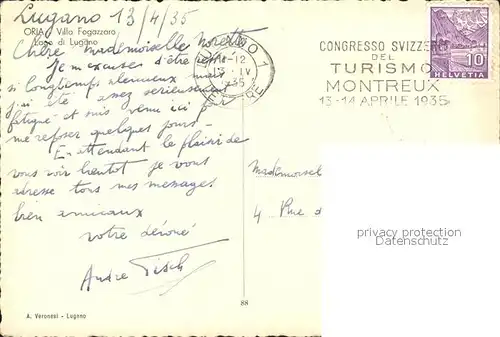 Lugano 13/4/35
ORIA - Villa Fogazzaro
Lago di Lugano
Chère mademoiselle
Je m'excuse d'être resté
si longtemps silencieux mais
j'ai été assez sérieusement
fatigué et suis venu ici
me reposer quelques jours -
En attendant le plaisir de
vous voir bientôt je vous
adresse tous mes messages
bien amicaux
votre dévoué
André
LUGANO 1
12
13. IV
1935
CONGRESSO SVIZZERO
DEL
TURISMO
MONTREUX
13-14 APRILE 1935
10
HELVETIA
Mademoisel
4 Rue d
privacy protection
Datenschutz
A. Veronesi - Lugano
88